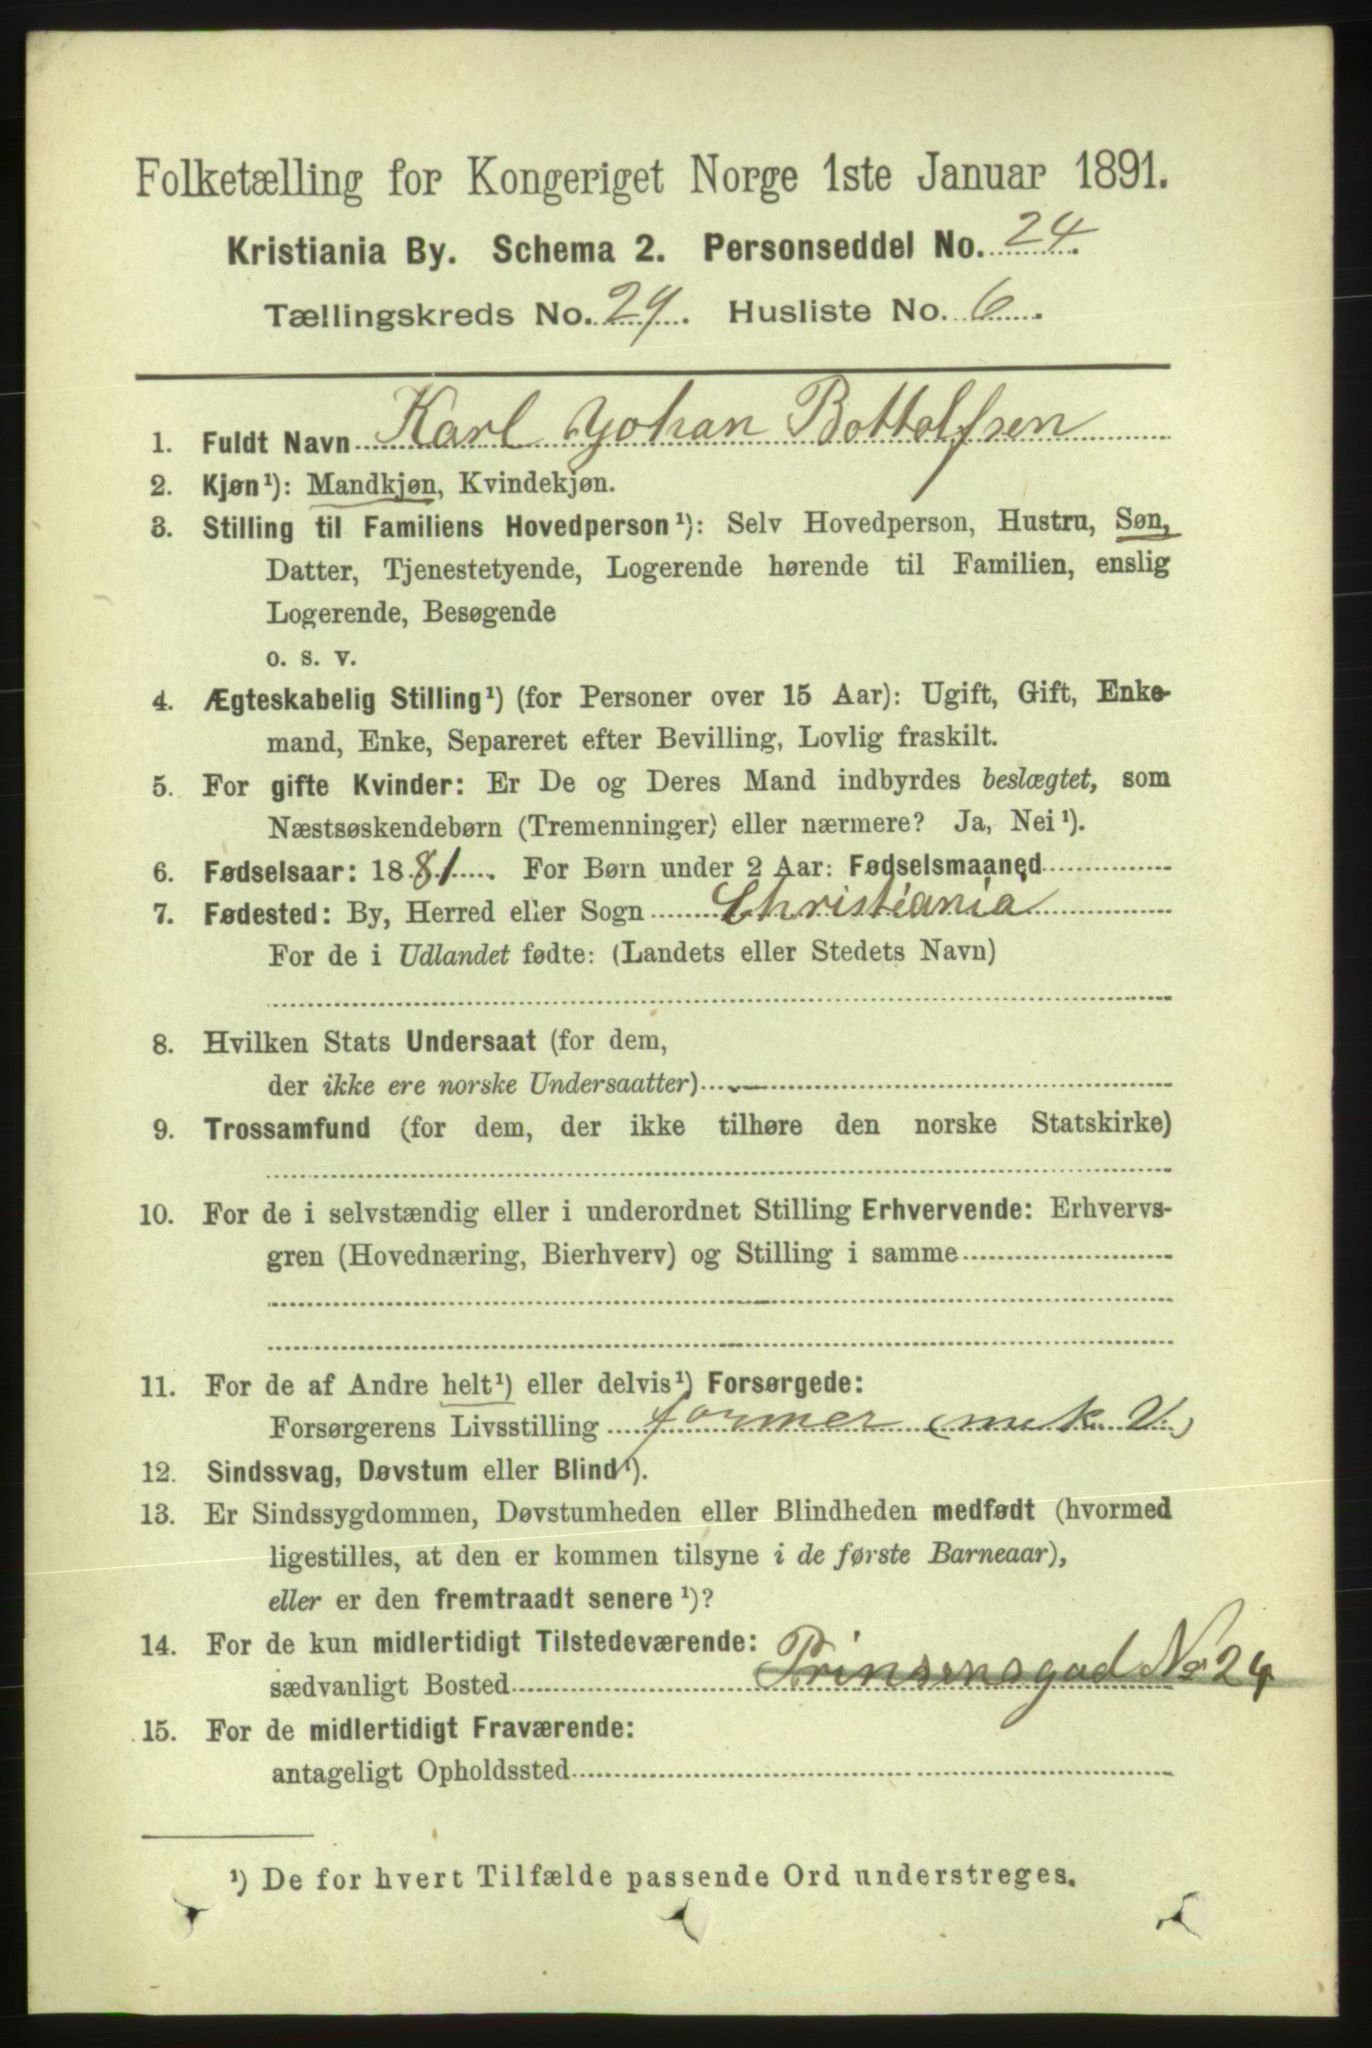 Folketælling for Kongeriget Norge 1ste Januar 1891.
Kristiania By. Schema 2. Personseddel No. 24.
Tællingskreds No. 29. Husliste No. 6.
1. Fuldt Navn Karl Johan Bottolfsen
2. Kjøn¹): Mandkjøn, Kvindekjøn.
3. Stilling til Familiens Hovedperson¹): Selv Hovedperson, Hustru, Søn,
Datter, Tjenestetyende, Logerende hørende til Familien, enslig
Logerende, Besøgende
o. s. v.
4. Ægteskabelig Stilling¹) (for Personer over 15 Aar): Ugift, Gift, Enke-
mand, Enke, Separeret efter Bevilling, Lovlig fraskilt.
5. For gifte Kvinder: Er De og Deres Mand indbyrdes beslægtet, som
Næstsøskendebørn (Tremenninger) eller nærmere? Ja, Nei¹).
6. Fødselsaar: 1881. For Børn under 2 Aar: Fødselsmaaned
7. Fødested: By, Herred eller Sogn Christiania
For de i Udlandet fødte: (Landets eller Stedets Navn)
8. Hvilken Stats Undersaat (for dem,
der ikke ere norske Undersaatter)
9. Trossamfund (for dem, der ikke tilhøre den norske Statskirke)
10. For de i selvstændig eller i underordnet Stilling Erhvervende: Erhvervs-
gren (Hovednæring, Bierhverv) og Stilling i samme
11. For de af Andre helt¹) eller delvis¹) Forsørgede:
Forsørgerens Livsstilling former (mek. V.)
12. Sindssvag, Døvstum eller Blind¹).
13. Er Sindssygdommen, Døvstumheden eller Blindheden medfødt (hvormed
ligestilles, at den er kommen tilsyne i de første Barneaar),
eller er den fremtraadt senere¹)?
14. For de kun midlertidigt Tilstedeværende:
sædvanligt Bosted Prinsensgad No 24
15. For de midlertidigt Fraværende:
antageligt Opholdssted
¹) De for hvert Tilfælde passende Ord understreges.